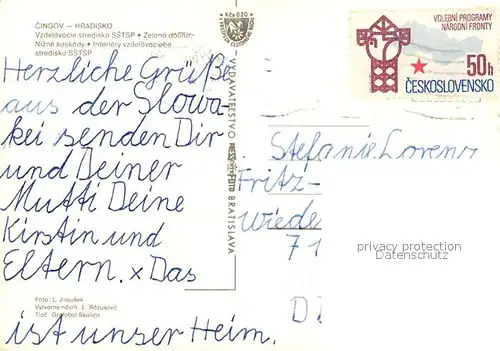 ČINGOV — HRADISKO
Vzdelávacie stredisko SŠTSP • Zelená dolina
Nižné kaskády • Interiéry vzdelávacieho
strediska SŠTSP
Herzliche Grüße
aus der Slowa-
kei senden Dir
und Deiner
Mutti Deine
Kirstin und
Eltern. x Das
Foto: L. Jiroušek
Výtvarný návrh: L. Rózusová
Tlač: Skalica
ist unser Heim.
Kčs 0,20
VYDAVATEĽSTVO PRESSFOTO BRATISLAVA
VOLEBNÍ PROGRAMY
NÁRODNÍ FRONTY
50h
ČESKOSLOVENSKO
Stefanie Lorenz
Fritz-
Wiede
71
D
privacy protection
Datenschutz